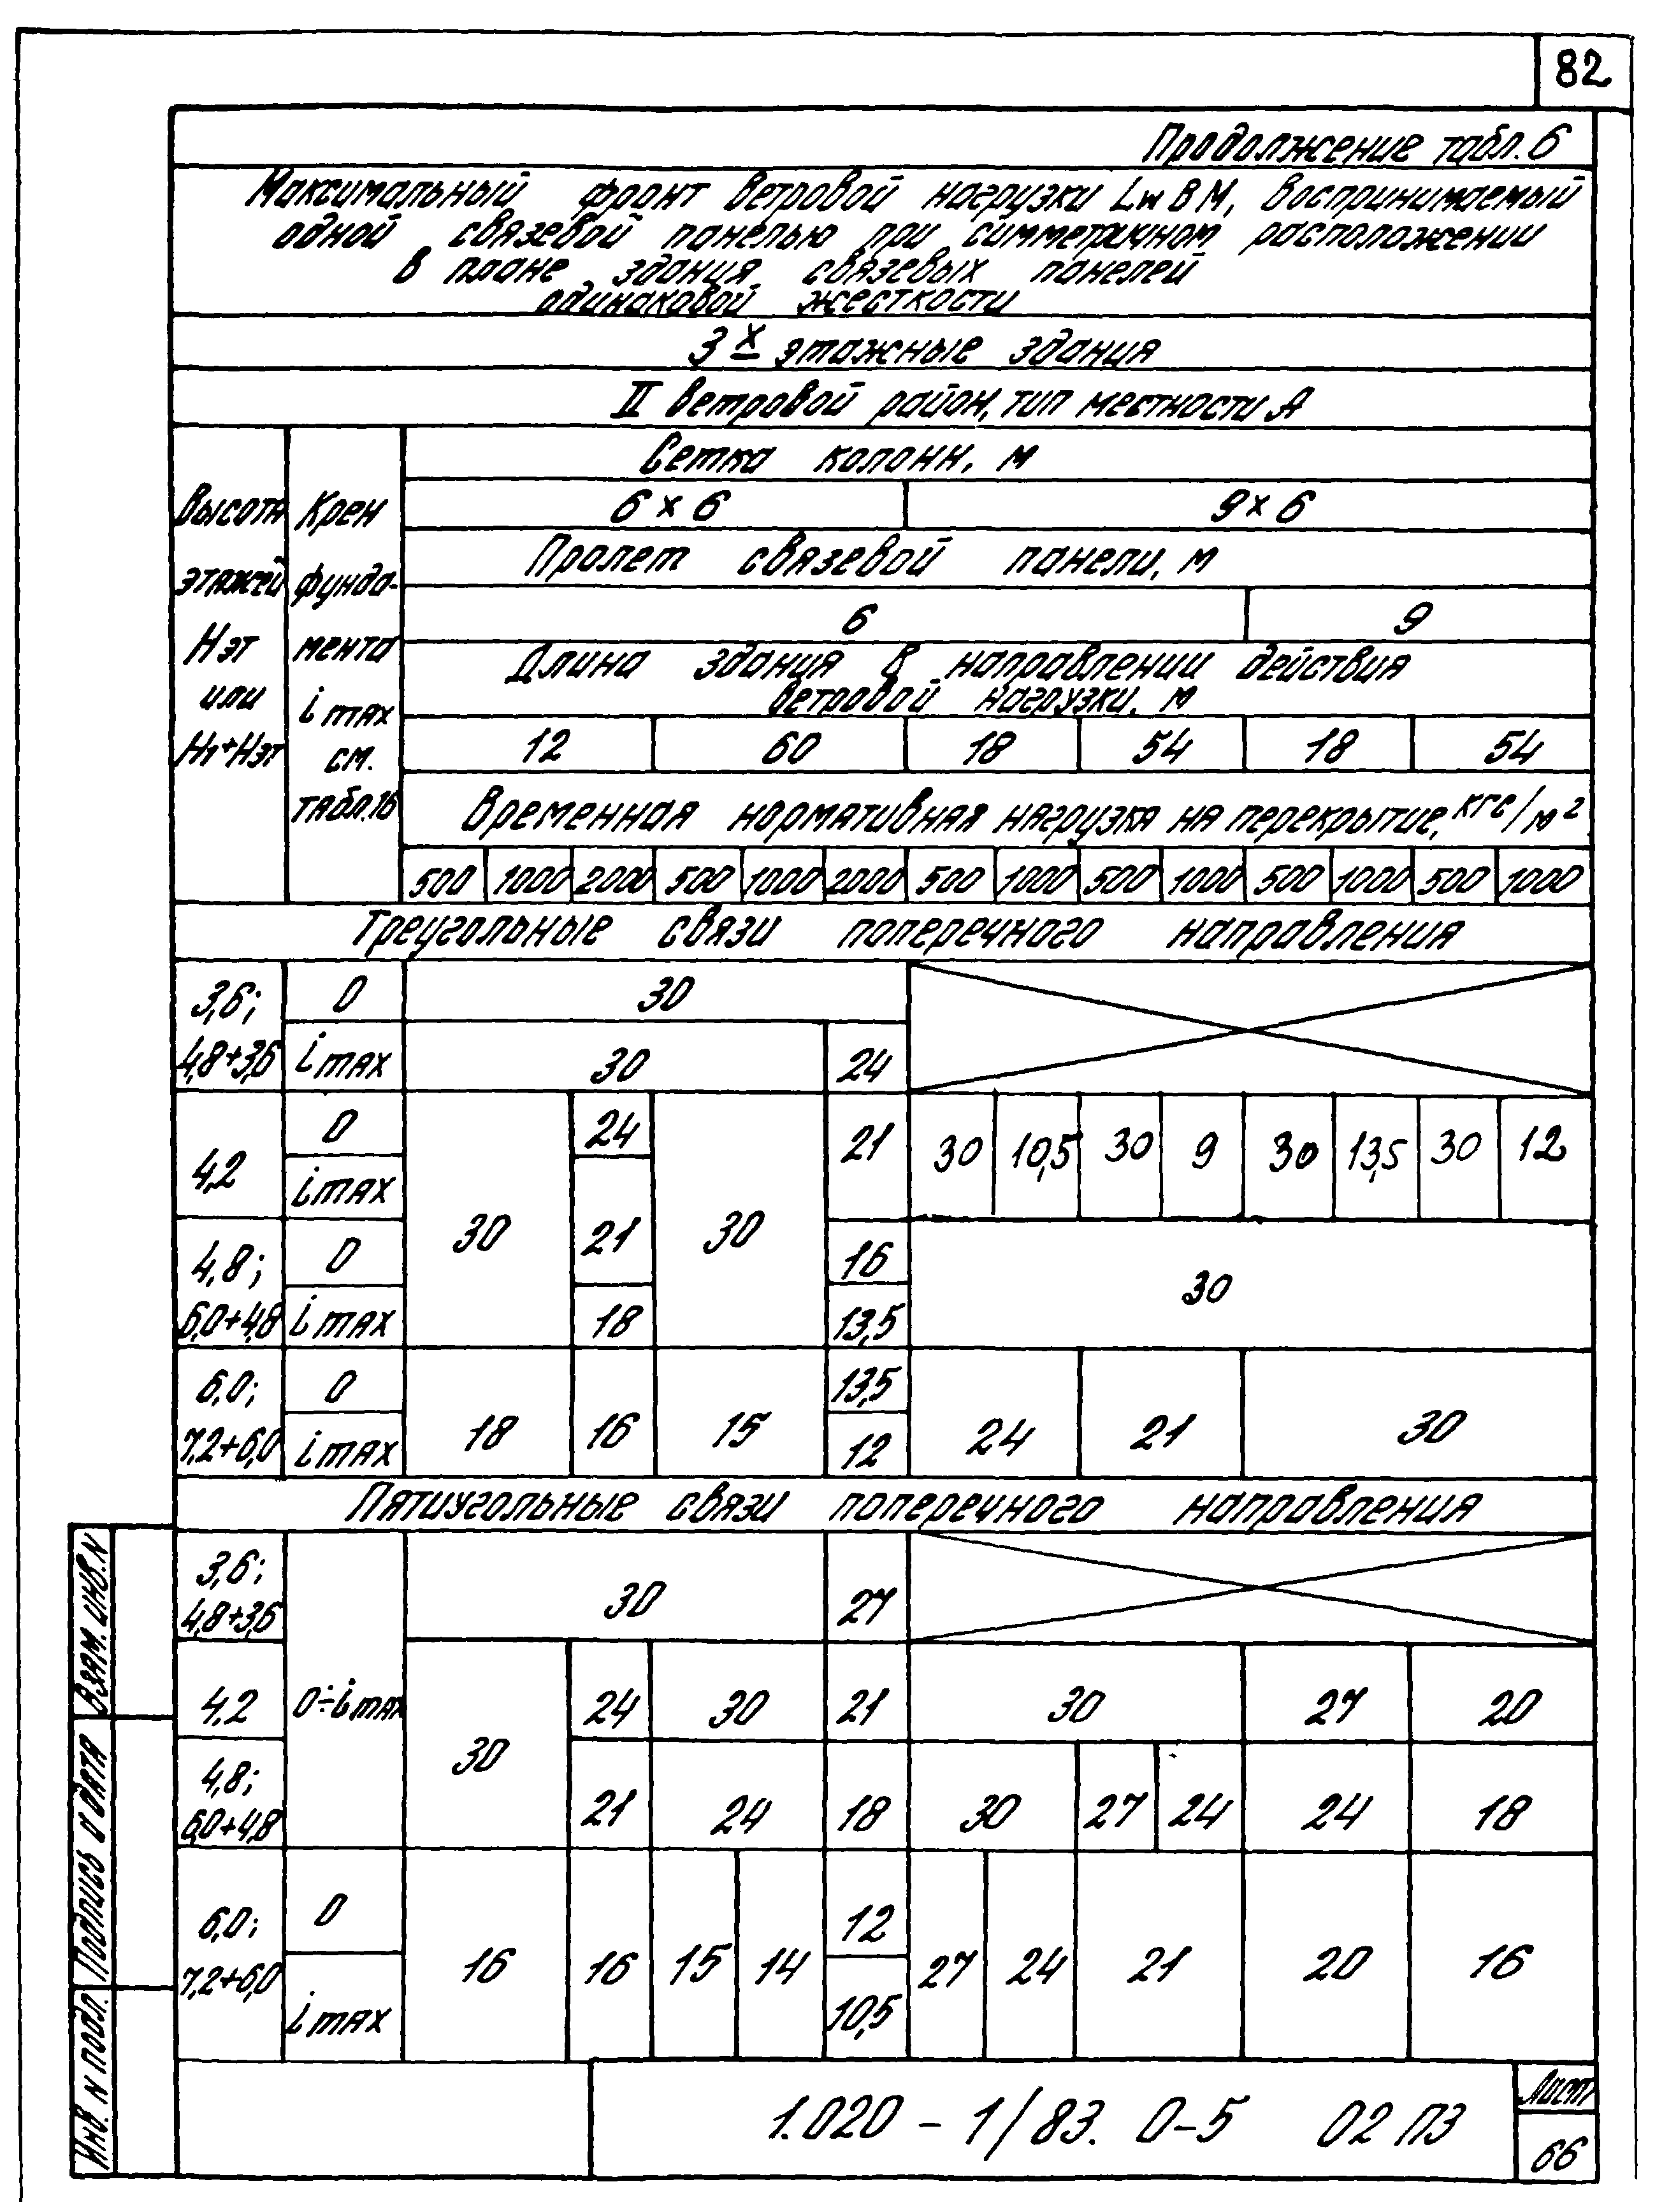 82
Продолжение табл. 6
Максимальный фронт ветровой нагрузки Lw в м, воспринимаемый
одной связевой панелью при симметричном расположении
в плане здания связевых панелей
одинаковой жесткости
3х этажные здания
II ветровой район, тип местности А
Высота этажей Нэт или Н1+Нэт
Крен фунда-мента imax см. табл. 16
Сетка колонн, м
6×6 9×6
Пролет связевой панели, м
6 9
Длина здания в направлении действия
ветровой нагрузки, м
12 60 18 54 18 54
Временная нормативная нагрузка на перекрытие, кгс/м2
500 1000 2000 500 1000 2000 500 1000 500 1000 500 1000 500 1000
Треугольные связи поперечного направления
3,6; 0 30
4,8+3,6 imax 30 24
4,2 0 24 21 30 10,5 30 9 30 13,5 30 12
imax
30 21 30
4,8; 0 16 30
6,0+4,8 imax 18 13,5
6,0; 0 13,5
7,2+6,0 imax 18 16 15 12 24 21 30
Пятиугольные связи поперечного направления
3,6;
4,8+3,6 30 27
4,2 0÷imax 24 30 21 30 27 20
30
4,8;
6,0+4,8 21 24 18 30 27 24 24 18
6,0; 0 12
7,2+6,0 16 16 15 14 27 24 21 20 16
imax 10,5
1.020-1/83. 0-5 02 ПЗ
Лист
66
Взам. инв. N
Подпись и дата
Инв. N подл.